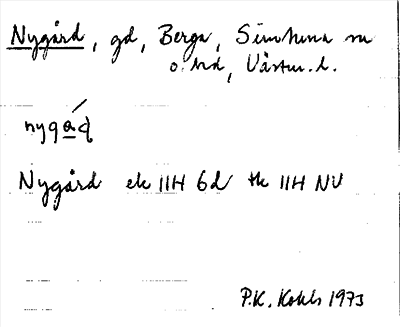 Nygård, gd, Berga, Simtuna sn
o. hd, Västm. l.
nygaɖ
Nygård ek 11H 6d tk 11H NV
P.K. Kohls 1973